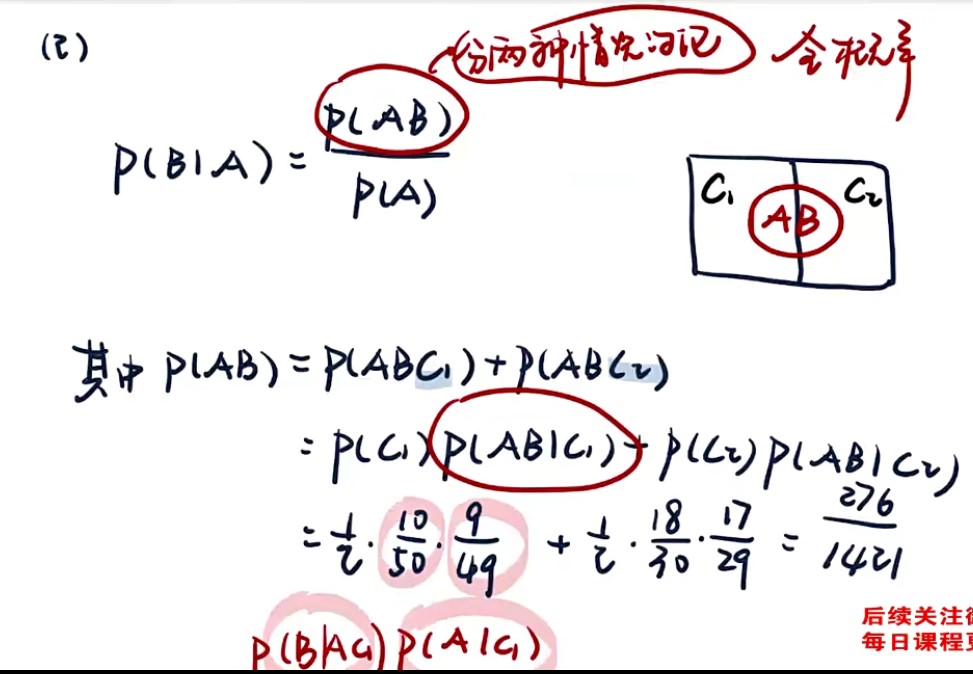 (2) 分两种情况讨论 全概率
P(B|A) = P(AB) / P(A)
C₁ AB C₂
其中 P(AB) = P(ABC₁) + P(ABC₂)
= P(C₁) P(AB|C₁) + P(C₂) P(AB|C₂)
= 1/2 · 10/50 · 9/49 + 1/2 · 18/30 · 17/29 = 276/1421
P(B|AC₁) P(A|C₁)
后续关注
每日课程